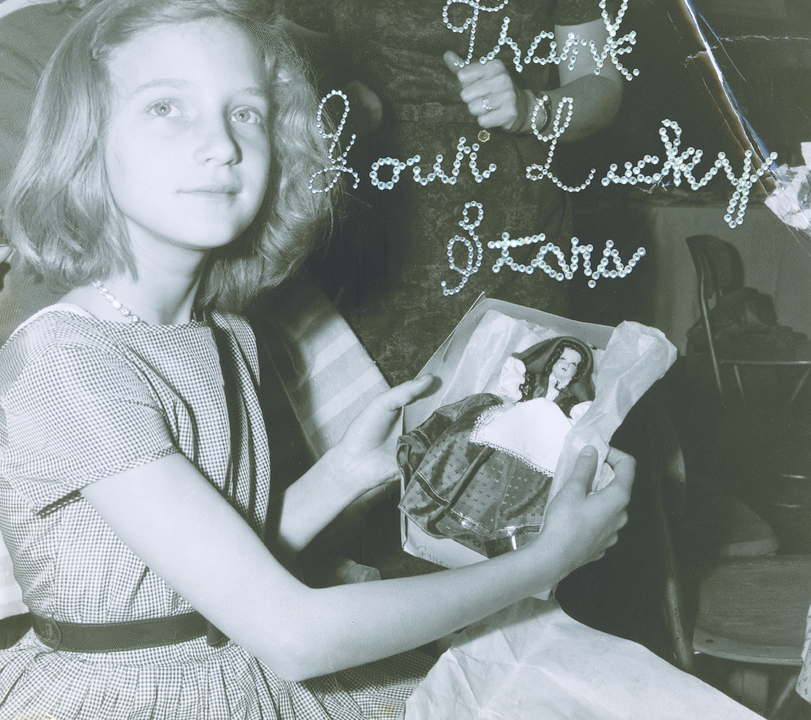 Thank
Your Lucky
Stars